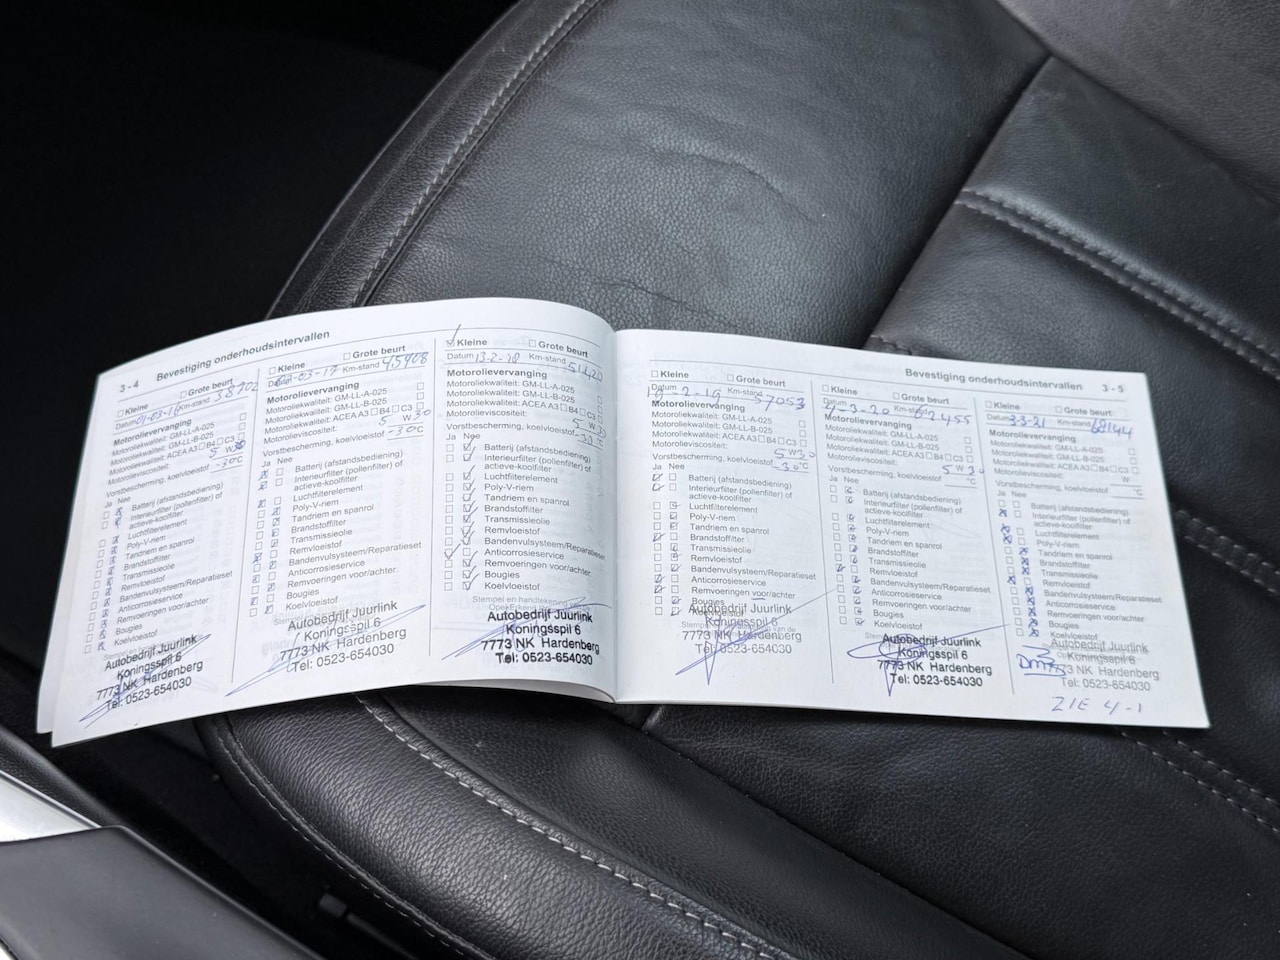 3 - 4 Bevestiging onderhoudsintervallen
Kleine Grote beurt
Datum 01-03-16 Km-stand 38702
Motorolievervanging
Motoroliekwaliteit: GM-LL-A-025
Motoroliekwaliteit: GM-LL-B-025
Motoroliekwaliteit: ACEA A3 B4 C3
Motorolieviscositeit: 5 W 30
Vorstbescherming, koelvloeistof -30C
Ja Nee
Batterij (afstandsbediening)
Interieurfilter (pollenfilter) of
actieve-koolfilter
Luchtfilterelement
Poly-V-riem
Tandriem en spanrol
Brandstoffilter
Transmissieolie
Remvloeistof
Bandenvulsysteem/Reparatieset
Anticorrosieservice
Remvoeringen voor/achter
Bougies
Koelvloeistof
Autobedrijf Juurlink
Koningsspil 6
7773 NK Hardenberg
Tel: 0523-654030
Kleine Grote beurt
Datum -03-17 Km-stand 45908
Motorolievervanging
Motoroliekwaliteit: GM-LL-A-025
Motoroliekwaliteit: GM-LL-B-025
Motoroliekwaliteit: ACEA A3 B4 C3
Motorolieviscositeit: 5 W 30
Vorstbescherming, koelvloeistof -30C
Ja Nee
Batterij (afstandsbediening)
Interieurfilter (pollenfilter) of
actieve-koolfilter
Luchtfilterelement
Poly-V-riem
Tandriem en spanrol
Brandstoffilter
Transmissieolie
Remvloeistof
Bandenvulsysteem/Reparatieset
Anticorrosieservice
Remvoeringen voor/achter
Bougies
Koelvloeistof
Autobedrijf Juurlink
Koningsspil 6
7773 NK Hardenberg
Tel: 0523-654030
Kleine Grote beurt
Datum 13-2-18 Km-stand 51420
Motorolievervanging
Motoroliekwaliteit: GM-LL-A-025
Motoroliekwaliteit: GM-LL-B-025
Motoroliekwaliteit: ACEA A3 B4 C3
Motorolieviscositeit: 5 W 30
Vorstbescherming, koelvloeistof -30 °C
Ja Nee
Batterij (afstandsbediening)
Interieurfilter (pollenfilter) of
actieve-koolfilter
Luchtfilterelement
Poly-V-riem
Tandriem en spanrol
Brandstoffilter
Transmissieolie
Remvloeistof
Bandenvulsysteem/Reparatieset
Anticorrosieservice
Remvoeringen voor/achter
Bougies
Koelvloeistof
Stempel en handtekening
Autobedrijf Juurlink
Koningsspil 6
7773 NK Hardenberg
Tel: 0523-654030
Bevestiging onderhoudsintervallen 3 - 5
Kleine Grote beurt
Datum -2-19 Km-stand 57053
Motorolievervanging
Motoroliekwaliteit: GM-LL-A-025
Motoroliekwaliteit: GM-LL-B-025
Motoroliekwaliteit: ACEA A3 B4 C3
Motorolieviscositeit: 5 W 30
Vorstbescherming, koelvloeistof -30°C
Ja Nee
Batterij (afstandsbediening)
Interieurfilter (pollenfilter) of
actieve-koolfilter
Luchtfilterelement
Poly-V-riem
Tandriem en spanrol
Brandstoffilter
Transmissieolie
Remvloeistof
Bandenvulsysteem/Reparatieset
Anticorrosieservice
Remvoeringen voor/achter
Bougies
Koelvloeistof
Autobedrijf Juurlink
Koningsspil 6
7773 NK Hardenberg
Tel: 0523-654030
Kleine Grote beurt
Datum 4-3-20 Km-stand 62455
Motorolievervanging
Motoroliekwaliteit: GM-LL-A-025
Motoroliekwaliteit: GM-LL-B-025
Motoroliekwaliteit: ACEA A3 B4 C3
Motorolieviscositeit: 5 W 30
Vorstbescherming, koelvloeistof °C
Ja Nee
Batterij (afstandsbediening)
Interieurfilter (pollenfilter) of
actieve-koolfilter
Luchtfilterelement
Poly-V-riem
Tandriem en spanrol
Brandstoffilter
Transmissieolie
Remvloeistof
Bandenvulsysteem/Reparatieset
Anticorrosieservice
Remvoeringen voor/achter
Bougies
Koelvloeistof
Autobedrijf Juurlink
Koningsspil 6
7773 NK Hardenberg
Tel: 0523-654030
Kleine Grote beurt
Datum 3-3-21 Km-stand 68144
Motorolievervanging
Motoroliekwaliteit: GM-LL-A-025
Motoroliekwaliteit: GM-LL-B-025
Motoroliekwaliteit: ACEA A3 B4 C3
Motorolieviscositeit: W
Vorstbescherming, koelvloeistof °C
Ja Nee
Batterij (afstandsbediening)
Interieurfilter (pollenfilter) of
actieve-koolfilter
Luchtfilterelement
Poly-V-riem
Tandriem en spanrol
Brandstoffilter
Transmissieolie
Remvloeistof
Bandenvulsysteem/Reparatieset
Anticorrosieservice
Remvoeringen voor/achter
Bougies
Koelvloeistof
Autobedrijf Juurlink
Koningsspil 6
7773 NK Hardenberg
Tel: 0523-654030
ZIE 4-1